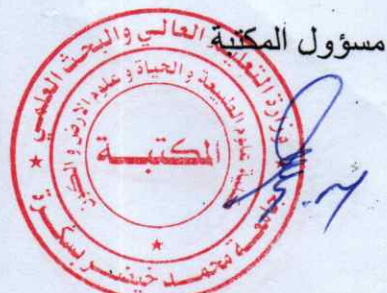 مسؤول المكتبة
وزارة التعليم العالي والبحث العلمي
علوم الطبيعة و الحياة و علوم الارض و الكون
المكتبـــة
جامعة محمد خيضر بسكرة